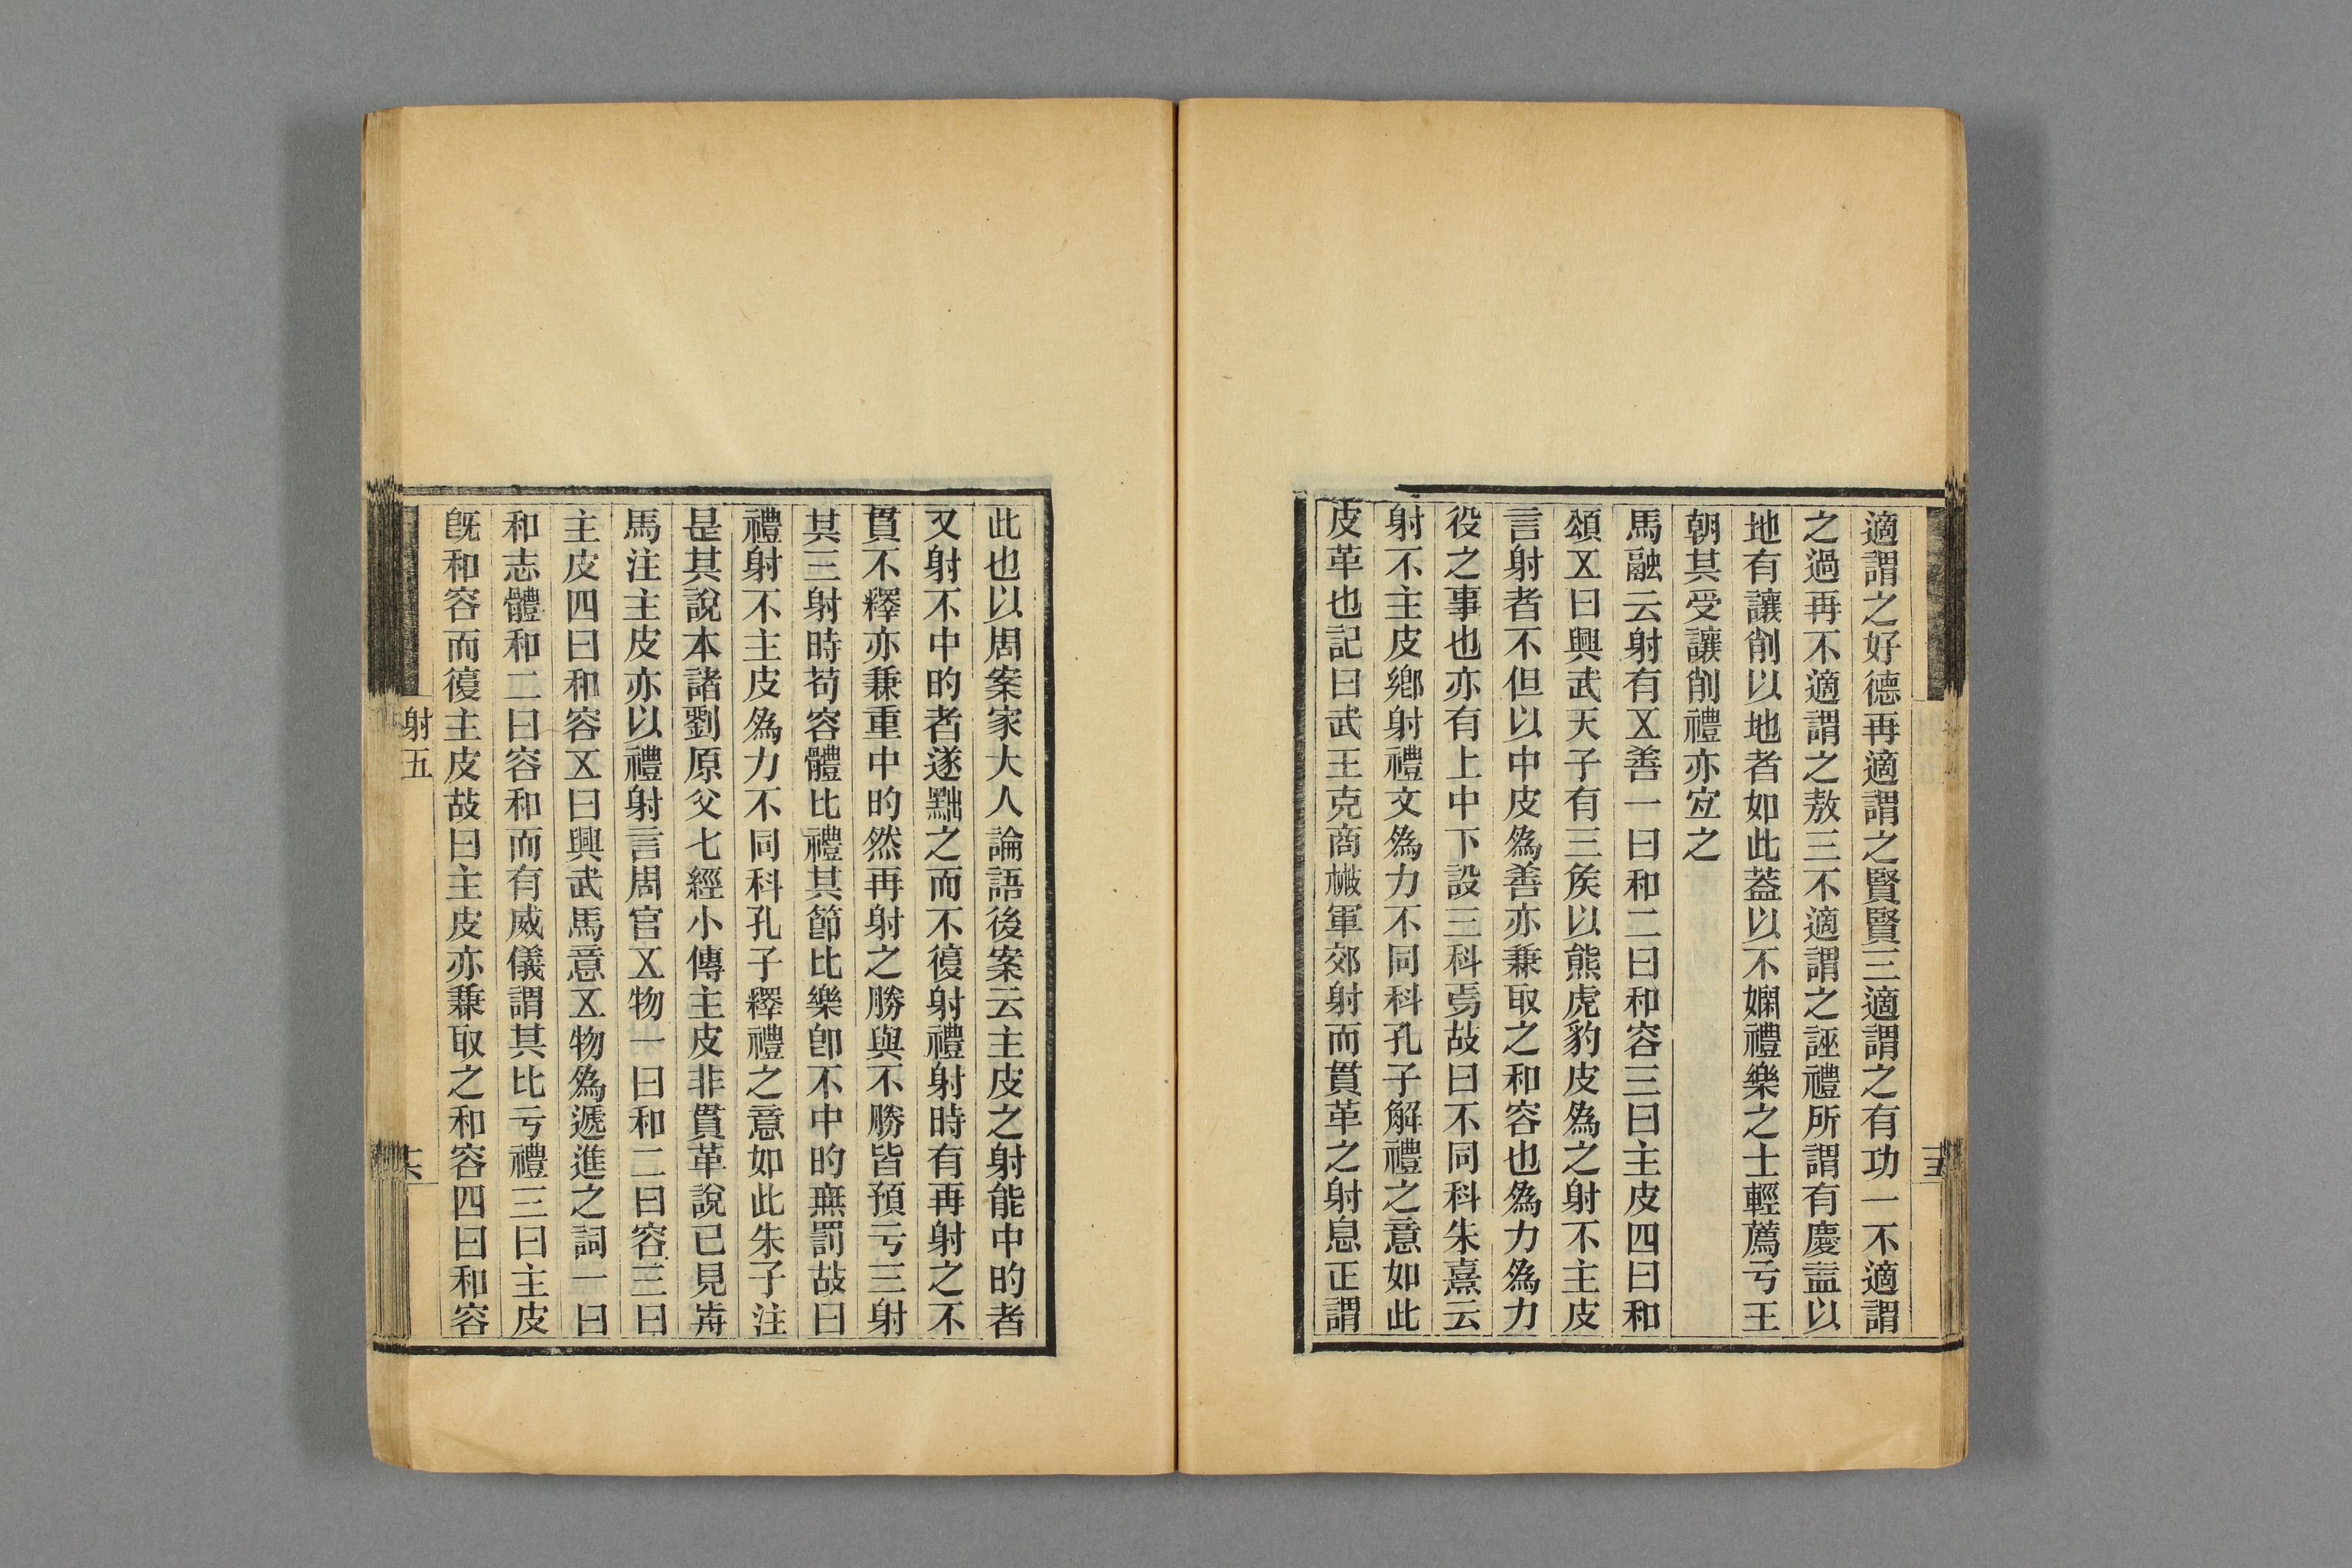 適謂之好德再適謂之賢賢三適謂之有功一不適謂
之過再不適謂之敖三不適謂之誣禮所謂有慶益以
地有讓削以地者如此蓋以不嫻禮樂之士輕薦亏王
朝其受讓削禮亦宐之
馬融云射有㐅善一曰和二曰和容三曰主皮四曰和
頌㐅曰興武天子有三矦以熊虎豹皮爲之射不主皮
言射者不但以中皮爲善亦兼取之和容也爲力爲力
役之事也亦有上中下設三科焉故曰不同科朱熹云
射不主皮鄉射禮文爲力不同科孔子解禮之意如此
皮革也記曰武王克商散軍郊射而貫革之射息正謂
此也以周案家大人論語後案云主皮之射能中旳者
又射不中旳者遂黜之而不復射禮射時有再射之不
貫不釋亦兼重中旳然再射之勝與不勝皆預亏三射
其三射時苟容體比禮其節比樂卽不中旳無罰故曰
禮射不主皮爲力不同科孔子釋禮之意如此朱子注
是其說本諸劉原父七經小傳主皮非貫革說已見歬
馬注主皮亦以禮射言周官㐅物一曰和二曰容三曰
主皮四曰和容㐅曰興武馬意㐅物爲遞進之詞一曰
和志體和二曰容和而有威儀謂其比亏禮三曰主皮
旣和容而復主皮故曰主皮亦兼取之和容四曰和容
射五